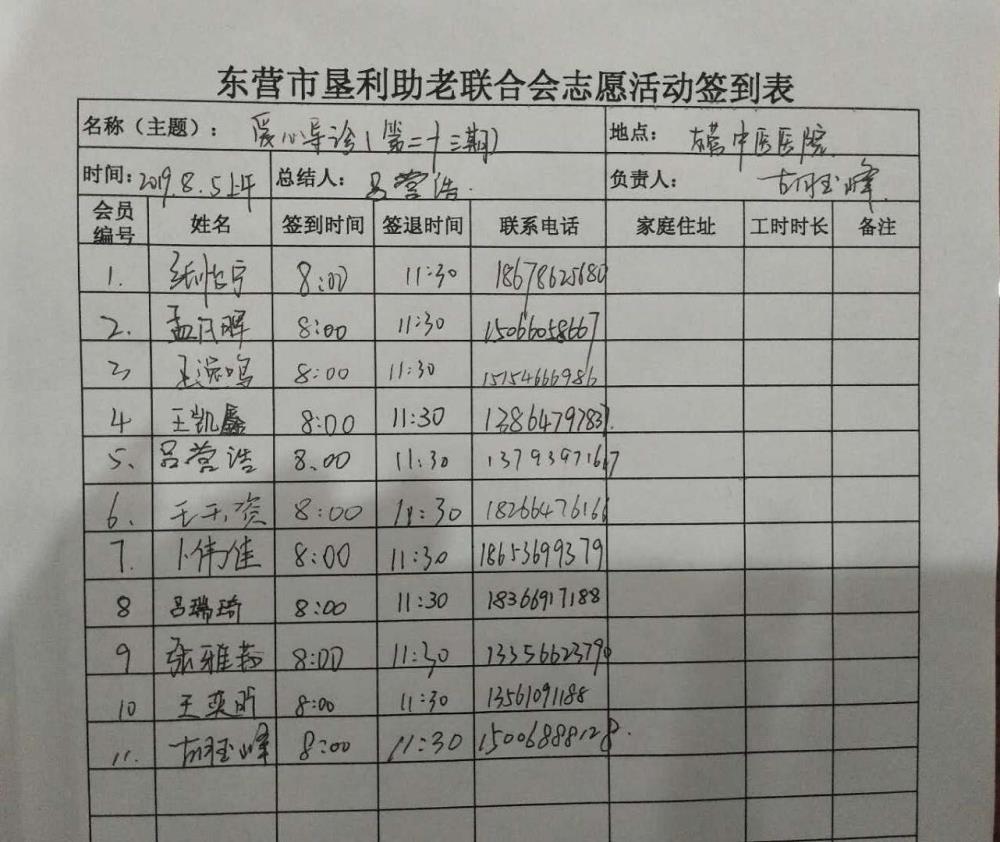 东营市垦利助老联合会志愿活动签到表
名称（主题）： 爱心导诊（第二十三期） 地点： 东营中医医院
时间：2019.8.5上午 总结人： 吕营浩. 负责人： 胡玉峰
会员编号 姓名 签到时间 签退时间 联系电话 家庭住址 工时时长 备注
1. 8:00 11:30 18678625680
2. 8:00 11:30 15066058667
3 8:00 11:30 15154666986
4 王凯鑫 8:00 11:30
5. 吕营浩 8.00 11:30 13793971667
6. 8:00 11:30 18266476166
7. 卜伟佳 8:00 11:30 18653699379
8 吕瑞琦 8:00 11:30 18366917188
9 8:00 11:30 13356623790
10 王奕昕 8:00 11:30 13561091188
11. 胡玉峰 8:00 11:30 15006888128.